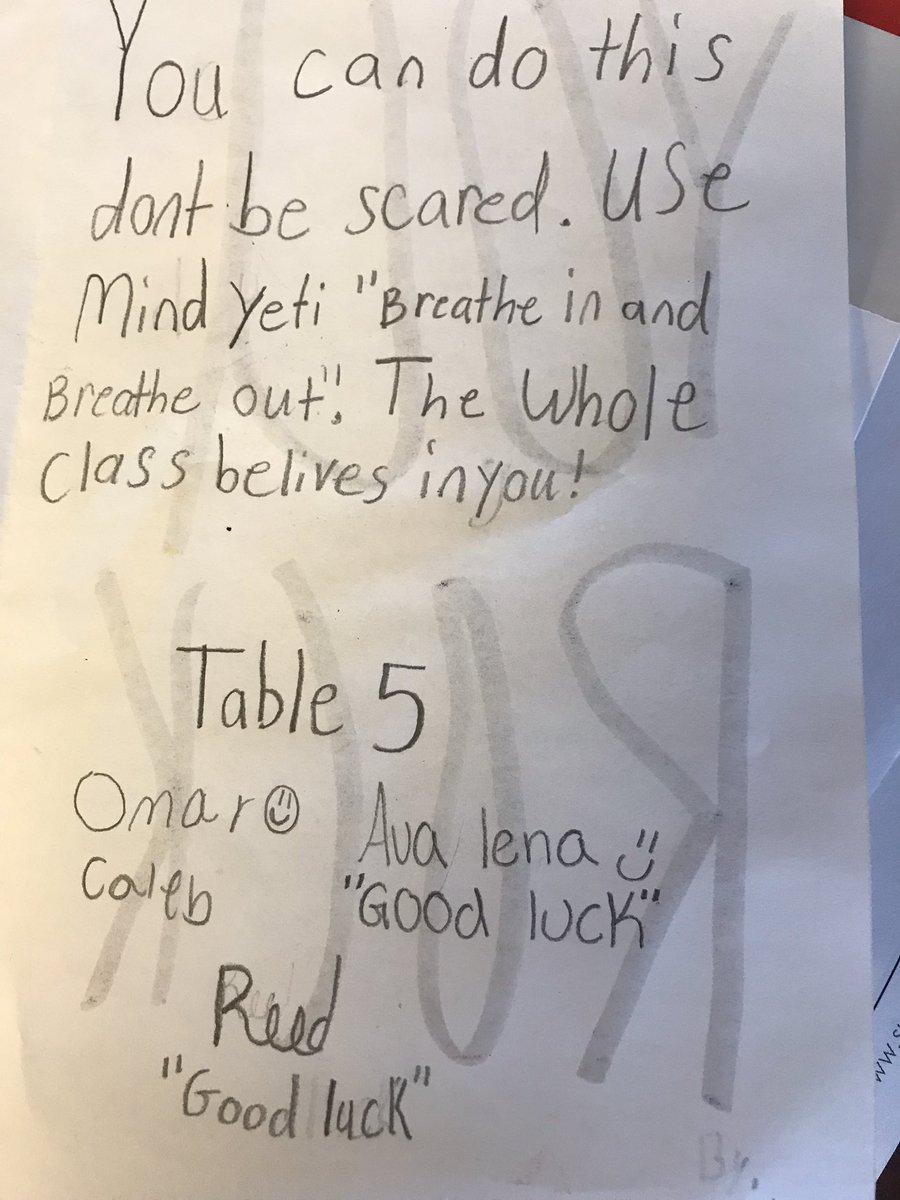 You can do this
dont be scared. USe
Mind Yeti "Breathe in and
Breathe out". The Whole
Class belives in you!
Table 5
Omar
Ava lena
Caleb
"Good luck"
Reed
"Good luck"
By.
YOU
ROCK